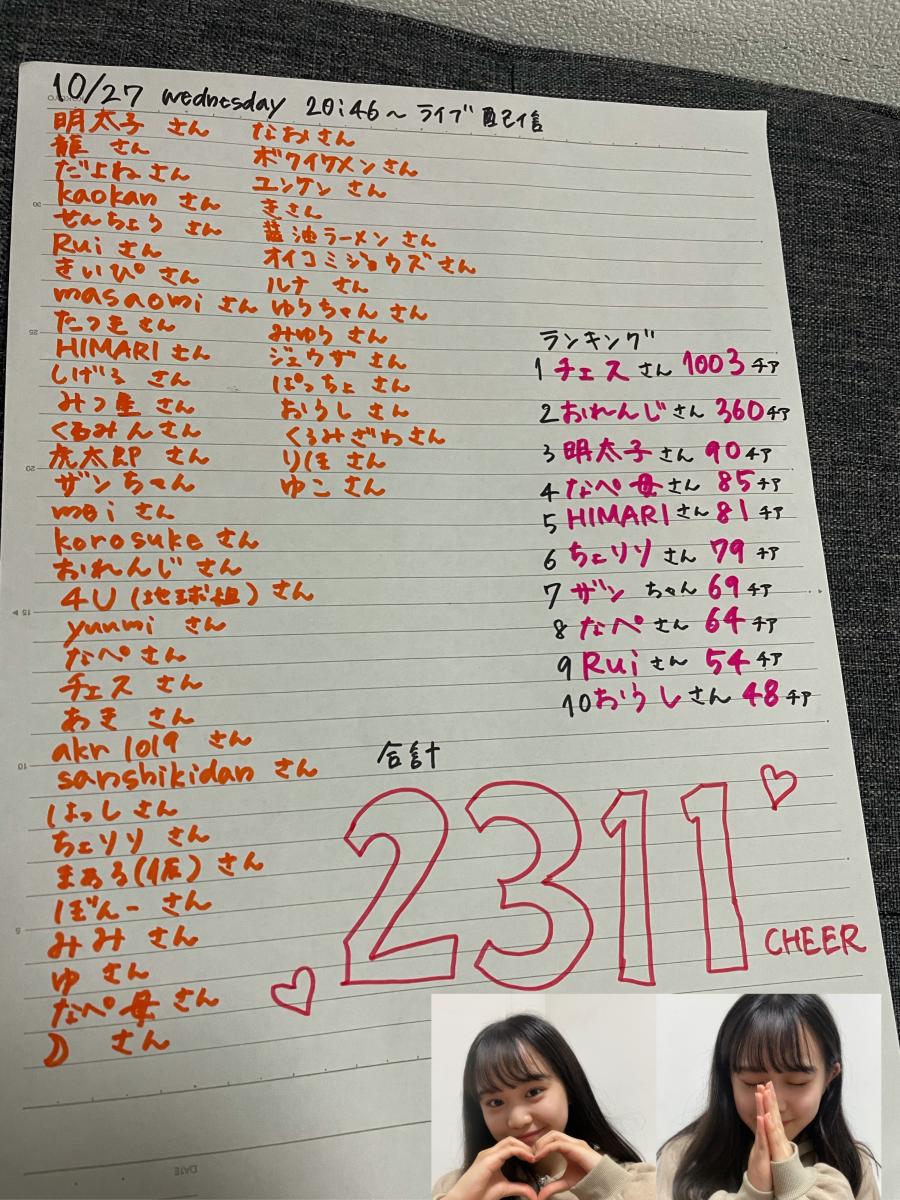 10/27 wednesday 20:46〜 ライブ配信
明太子 さん
龍 さん
だよねさん
kaokan さん
せんちょう さん
Rui さん
きいぴ さん
masaomi さん
たつきさん
HIMARI さん
しげる さん
みつ星 さん
くるみんさん
虎太郎 さん
ザンちゃん
mei さん
korosuke さん
おれんじ さん
4U(地球組) さん
yuumi さん
なぺさん
チェス さん
あき さん
akr1019 さん
sanshikidan さん
はっし さん
ちェリリ さん
まある(仮) さん
ぼんー さん
みみ さん
ゆ さん
なぺ母 さん
D さん
なおさん
ボクイケメンさん
ユンケン さん
きさん
醤油ラーメン さん
オイコミジョウズさん
ルナ さん
ゆうちゃん さん
みゆう さん
ジェウザ さん
ぱっちょ さん
おうし さん
くるみざわさん
りほ さん
ゆこ さん
ランキング
1 チェス さん 1003 チア
2 おれんじ さん 360 チア
3 明太子 さん 90 チア
4 なぺ母 さん 85 チア
5 HIMARI さん 81 チア
6 ちェリリ さん 79 チア
7 ザン ちゃん 69 チア
8 なぺ さん 64 チア
9 Rui さん 54 チア
10 おうし さん 48 チア
合計
2311
CHEER
5
10
15
20
25
30
DATE